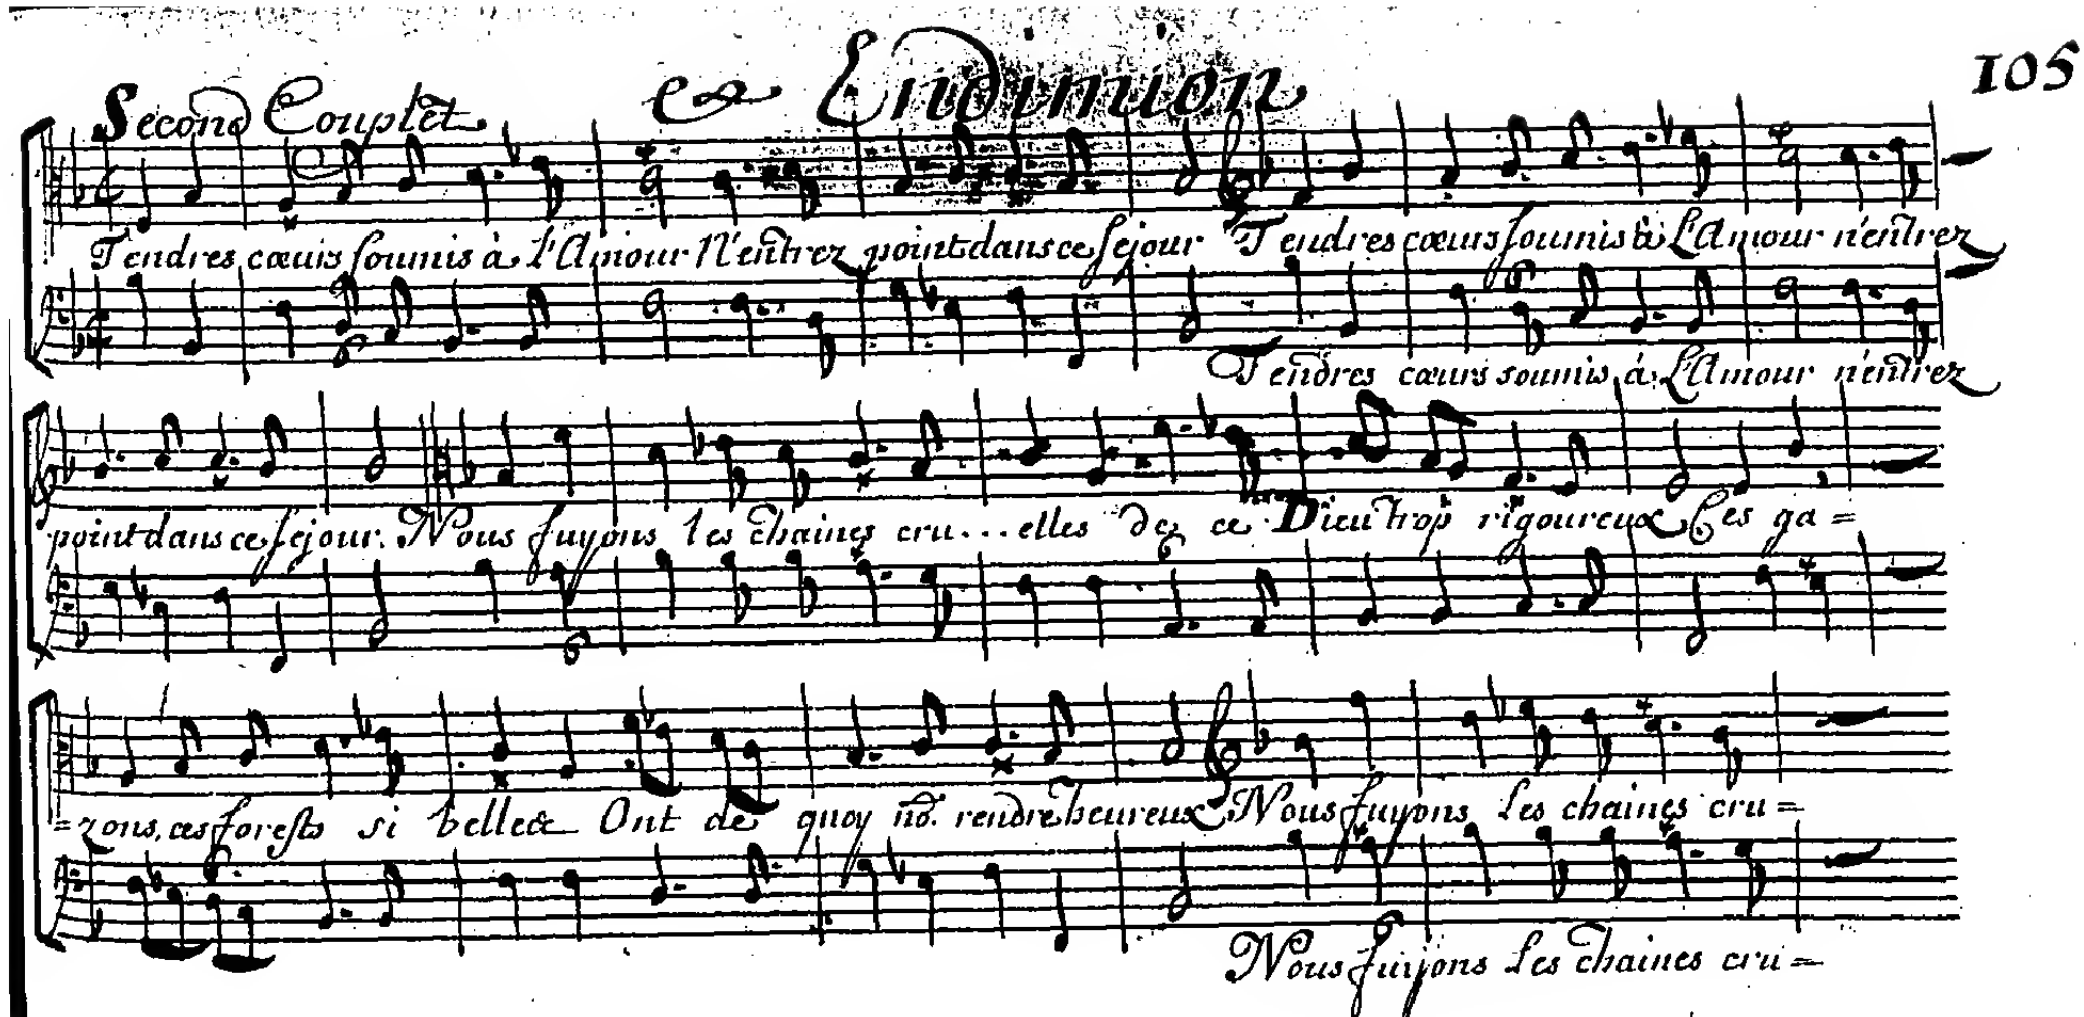 & Endimion 105
Second Couplet
Tendres cœurs soumis à l'Amour N'entrez point dans ce sejour Tendres cœurs soumis à L'Amour n'entrez
Tendres cœurs soumis à L'Amour n'entrez
point dans ce sejour. Nous fuyons les chaines cru...elles de ce Dieu trop rigoureux Ces ga=
=zons, ces forests si belles Ont de quoy no. rendre heureux Nous fuyons Les chaines cru=
Nous fuyons Les chaines cru=